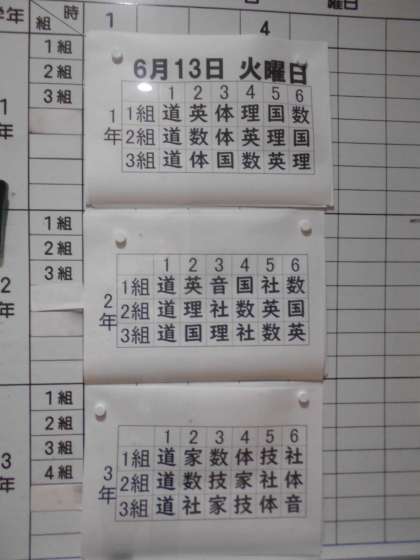 学年
組
時
1
4
曜日
1組
2組
3組
1
年
6月13日 火曜日
1 2 3 4 5 6
1年
1組 道 英 体 理 国 数
2組 道 数 体 英 理 国
3組 道 体 国 数 英 理
1組
2組
3組
2
年
1 2 3 4 5 6
2年
1組 道 英 音 国 社 数
2組 道 理 社 数 英 国
3組 道 国 理 社 数 英
1組
2組
3組
4組
3
年
1 2 3 4 5 6
3年
1組 道 家 数 体 技 社
2組 道 数 技 家 社 体
3組 道 社 家 技 体 音